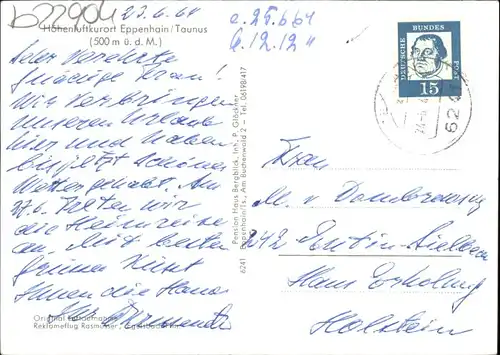 b22904
23.6.64
Höhenluftkurort Eppenhain/Taunus
(500 m ü. d. M.)
Sehr Verehrte
Gnädige Frau!
Wir verbringen
unseren Urlaub
hier und haben
bis jetzt schönes
Wetter gehabt. Am
27.6. treten wir
die Heimreise
an. Mit besten
Grüßen küsst
Ihnen die Hand
Ihr
Original Luftaufnahme
Reklameflug Rasmussen
6241 Eppenhain/Ts., Am Buchenwald 2 – Tel. 06198/417
Pension Haus Bergblick, Inh. P. Glöckner
e. 25.6.64
b. 12.12."
DEUTSCHE
BUNDES
POST
15
624
Frau
M. v.
242 Eutin-Sielbeck
Haus Erholung
Holstein